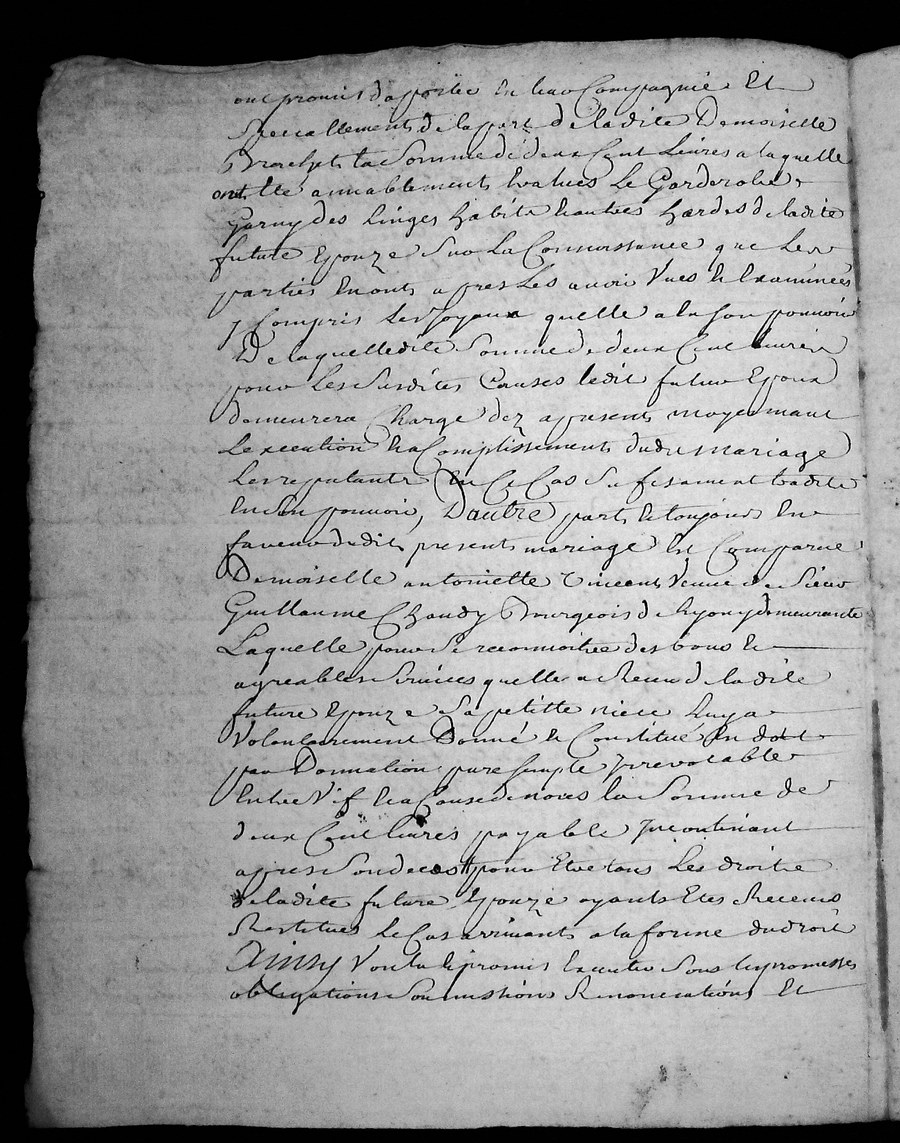 ont promis dapporter En leur Compagnie Et
Specialement de la part de ladite Demoiselle
la Somme de deux Cent Livres a laquelle
ont Ete amiablement Evalues Le Garderobe
Garny des Linges habits & autres hardes de ladite
future Epouze Sur La Connoissance que Les
parties En ont apres Les avoir Vues & Examinées
y Compris Les Joyaux quelle a la Son pouvoir
De laquelle dite Somme de deux Cent Livres
pour Les Susdites Causes ledit futur Epoux
demeurera Chargé dez apresent moyennant
Lexecution & accomplissement dudt mariage
Les reputants En Ce Cas Sufisament tradité
En Son pouvoir, D'autre part & toujours En
faveur dudit present mariage Est Comparue
Demoiselle antoinette Vincent Veuve de Sieur
Guillaume Chaudy Bourgeois de Lyon y demeurante
Laquelle pour Se reconnoitre des bons &
agreables Services quelle a Receu de ladite
future Epouze Sa petitte niece Luy a
Volontairement Donné & Constitué En dot
par Donnation pure Simple Irrevocable
Entre Vif & a Cause de noces la Somme de
deux Cent livres payable Incontinant
apres Son deces pour Etre tous Les droits
de ladite future Epouze ayants Etes Receus
Restitues Le Cas arrivant a la forme du droit
Ainsy Voulu & promis Executer Sous les promesses
obligations Soumissions Renonciations Et